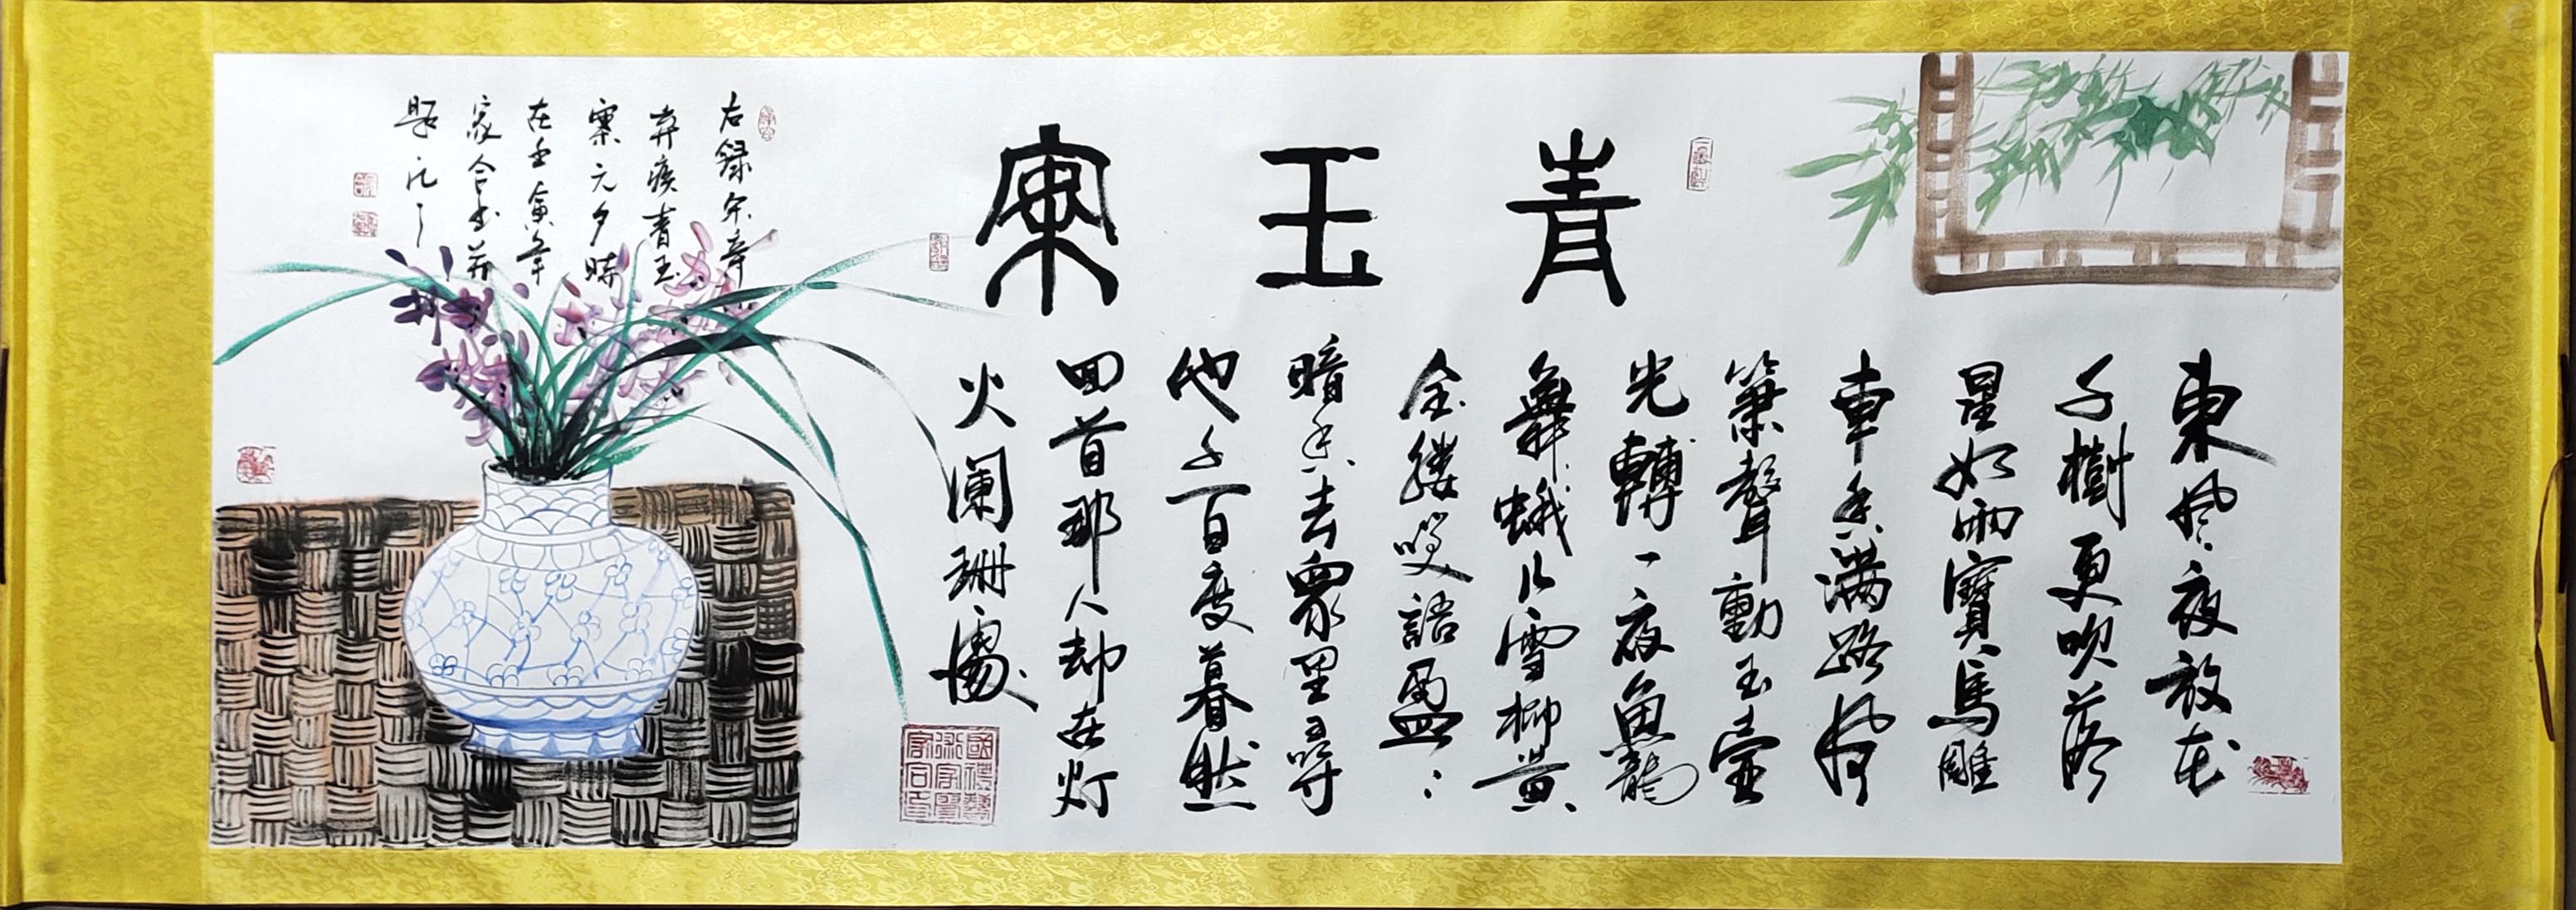 青玉案
東風夜放花
千樹更吹落
星如雨寶馬雕
車香满路风
簫聲動玉壺
光轉一夜魚龍
舞蛾儿雪柳黄
金縷笑語盈:
暗香去衆里尋
他千百度暮然
回首那人却在灯
火阑珊處
右録宋辛
弃疾青玉
案元夕時
在壬寅年
家合书并
题记之